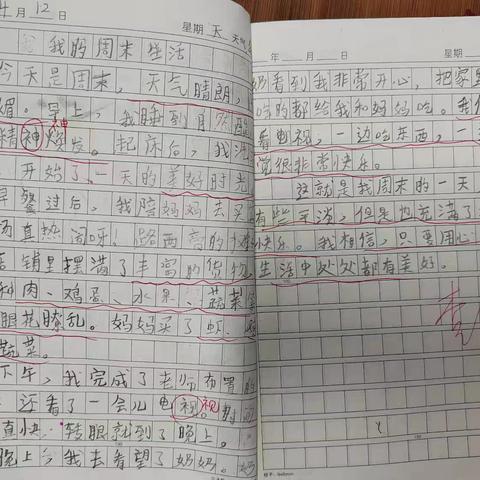 4月12日 星期天 天气
我的周末生活
今天是周末,天气晴朗,
媚。早上,我睡到自然醒
精神焕发。起床后,我洗
开始了一天的美好时光
早餐过后,我陪妈妈去买
场真热闹呀!路两旁的
店铺里摆满了丰富的货物
肉、鸡蛋、水果、蔬菜
眼花瞭乱。妈妈买了虾、
蔬菜。
下午,我完成了老师布置的
还看了一会儿电视视。时间
真快,转眼就到了晚上。
晚上,我去看望了奶奶。奶
年 月 日 星期
奶看到我非常开心,把家里
吃的都给我和妈妈吃。我们
看电视,一边吃东西,一
觉很非常快乐。
这就是我周末的一天
有些平淡,但是也充满了
快乐。我相信,只要用心
生活中处处都有美好。